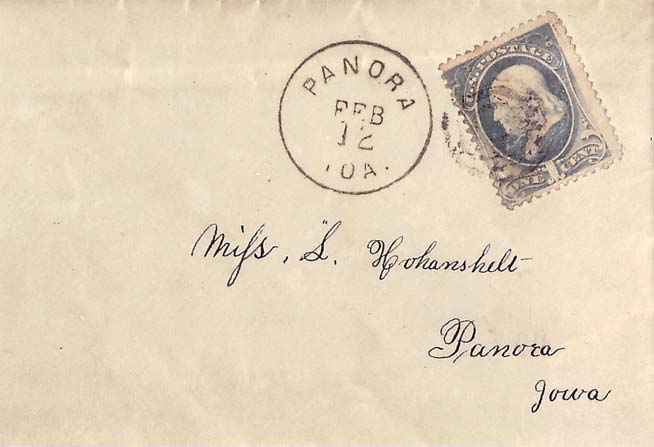 PANORA
FEB
12
IOA.
U.S. POSTAGE
ONE 1 CENT
Miss. S. Hohanshelt
Panora
Iowa